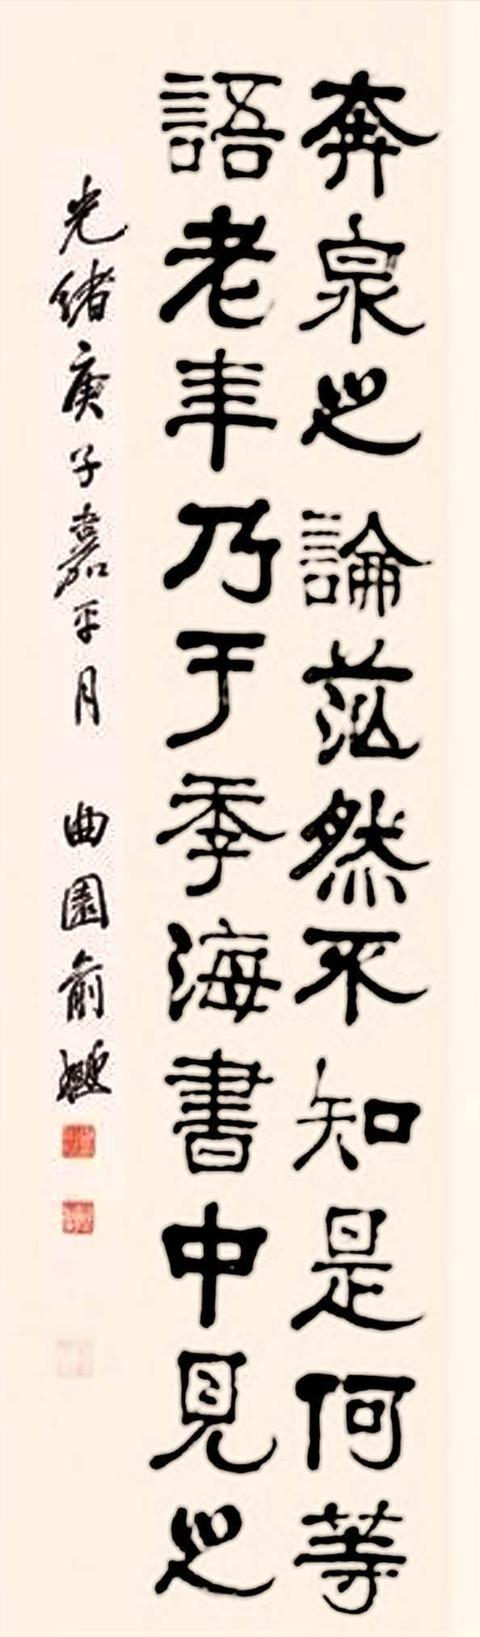 奔泉之論茫然不知是何等
語老年乃于季海書中見之
光緒庚子嘉平月 曲園俞樾